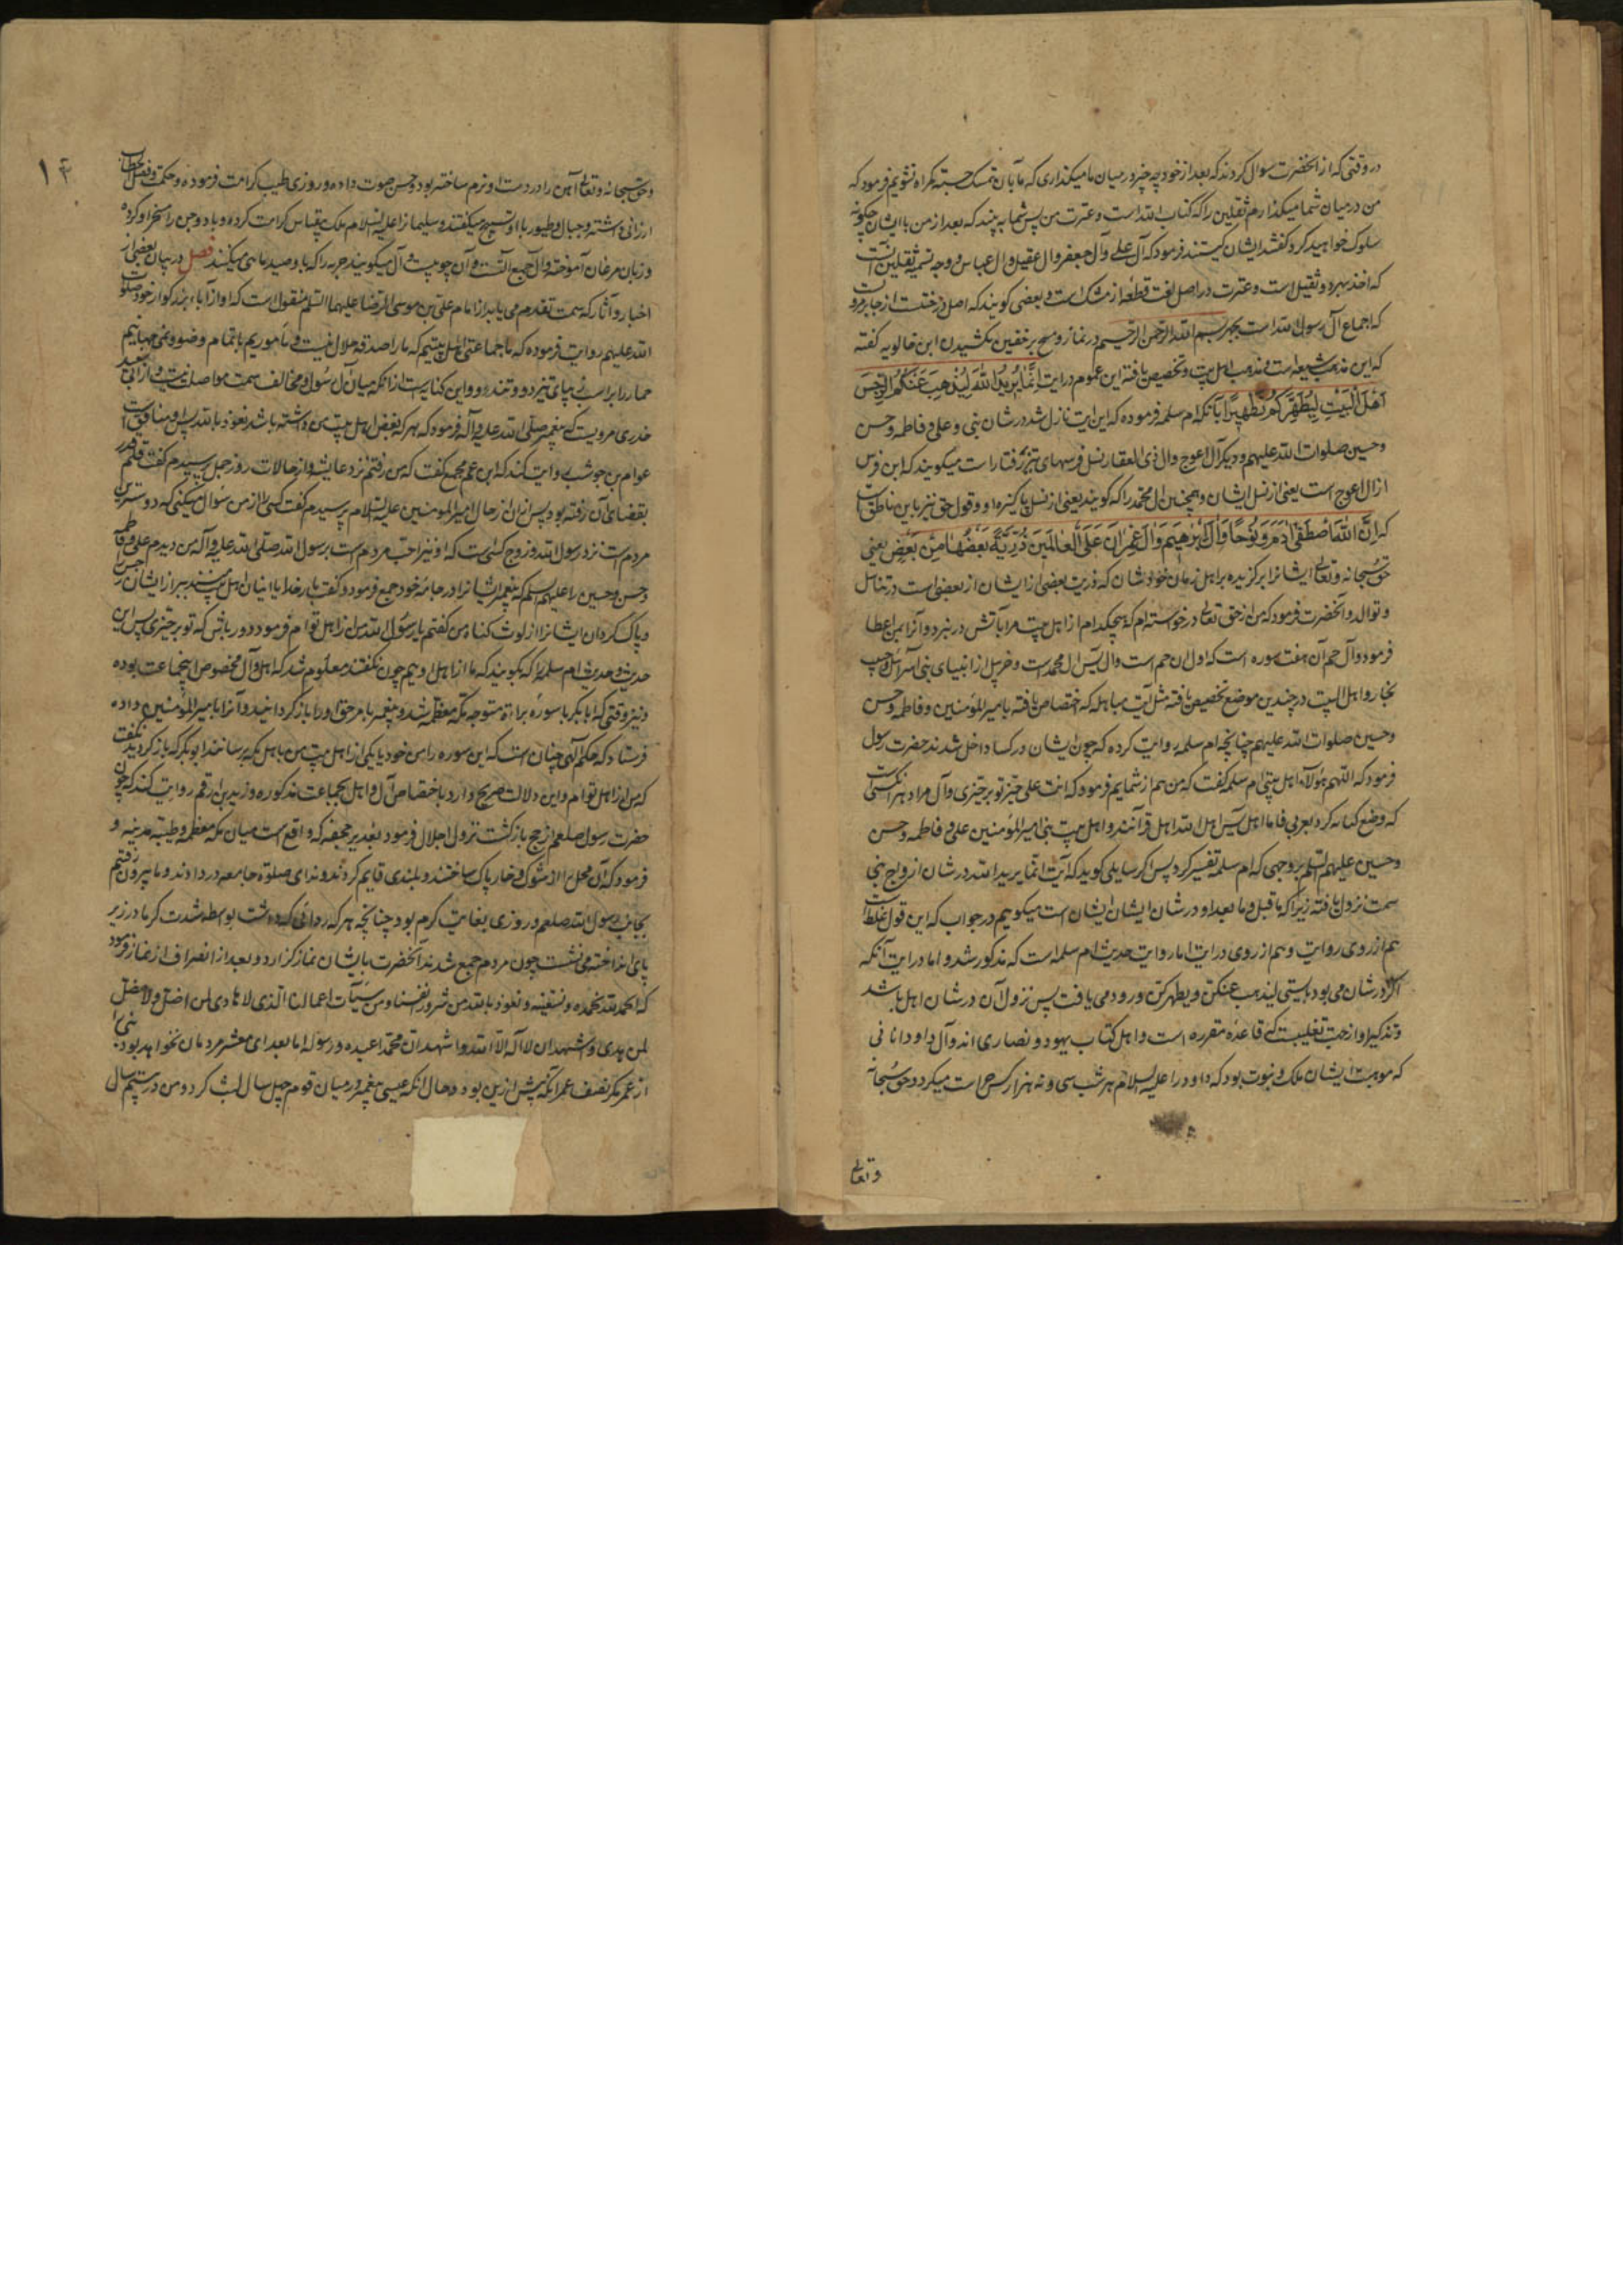 در وقتی که از آنحضرت سوال کردند که بعد از خود چه چیز در میان ما میگذاری که ما بآن تمسک جسته گمراه نشویم فرمود که
من در میان شما میگذارم ثقلین را که کتاب الله است و عترت من پس شما به بینید که بعد از من با ایشان چگونه
سلوک خواهید کرد گفتند ایشان کیستند فرمود که آل علی و آل جعفر و آل عقیل و آل عباس و وجه تسمیه ثقلین آنست
که اخذ بهر دو ثقیل است و عترت در اصل لغت قطعه از مشک است و بعضی گویند که اصل درختست از جابر مرویست
که اجماع آل رسول الله است بجهر بسم الله الرحمن الرحیم در نماز و مسح بر خفین نکشیدن ابن خالویه گفته
که این مذهب شیعه است و مذهب اهل بیت و تخصیص یافته این عموم در آیت إِنَّمَا يُرِيدُ اللَّهَ لِيُذْهِبَ عَنْكُمُ الرِّجْسَ
أَهْلَ الْبَيْتِ لِيُطَهِّرَكُمْ تَطْهِيرًا بآنکه ام سلمه فرموده که این آیت نازل شد در شان نبی و علی و فاطمه و حسن
و حسین صلوات الله علیهم و دیگر آل اعوج و آل ذی العقار نسل فرسهای تیز رفتار است میگویند که این فرس
از آل اعوج است یعنی از نسل ایشان و همچنین آل محمد را که گویند یعنی از نسل پاکیزه او و قول حق نیز باین ناطق است
که إِنَّ اللَّهَ اصْطَفَى آدَمَ وَنُوحًا وَآلَ إِبْرَاهِيمَ وَآلَ عِمْرَانَ عَلَى الْعَالَمِينَ ذُرِّيَّةً بَعْضُهَا مِنْ بَعْضٍ یعنی
حق سبحانه و تعالی ایشانرا برگزیده بر اهل زمان خودشان که ذریت بعضی از ایشان از بعضی است در تناسل
و توالد و آنحضرت فرمود که من از حق تعالی در خواسته ام که هیچکدام از اهل بیت مرا بآتش در نبرد و آنرا بمن اعطا
فرمود و آل حم آن هفت سوره است که اول آن حم است و آل یس آل محمدست و خربیل از انبیای بنی اسرائیل و حبیب
نجار و اهل البیت در چندین موضع تخصیص یافته مثل آیت مباهله که اختصاص یافته بامیر المؤمنین و فاطمه و حسن
و حسین صلوات الله علیهم چنانچه ام سلمه روایت کرده که چون ایشان در کسا داخل شدند حضرت رسول
فرمود که اللهم هؤلاء اهل بیتی ام سلمه گفت که من هم از شمایم فرمود که انت علی خیر تو بر خیری و آل مراد هر آنکسی است
که وضع کنایه کرد بعربی فاما اهل یس اهل الله اهل قرآنند و اهل بیت بنی امیر المؤمنین علی و فاطمه و حسن
و حسین علیهم السلم بر وجهی که ام سلمه تفسیر کرد پس اگر سایلی گوید که آیت انما یرید الله در شان ازواج نبی
سمت نزول یافته زیرا که ما قبل و ما بعد او در شان ایشان ایشان است میگویم در جواب که این قول غلط است
هم از روی روایت و هم از روی درایت اما روایت حدیث ام سلمه است که مذکور شد و اما درایت آنکه
اگر در شان می بود بایستی لیذهب عنکن و یطهرکن ورود می یافت پس نزول آن در شان اهل باشد
و تذکیر او از جهت تغلیبست که قاعده مقرره است و اهل کتاب یهود و نصاری اند و آل داود انا نی
که موهبت ایشان ملک و نبوت بود که داود را علیه السلام هر شب سی و نه هزار کس حراست میکرد و حق سبحانه
و تعالی
وحق سبحانه و تعالی آهن را در دست او نرم ساخته بود و حسن صوت داده و روزی طیب کرامت فرموده و حکمت و فصل خطاب
ارزانی داشته و جبال و طیور با او تسبیح میگفتند و سلیمانرا علیه السلام ملک بیقیاس کرامت کرده و باد و جن را مسخر او کرده
و زبان مرغان آموخته و آل جمیع آلتست و آن چوبیست آل میگویند حربه را که باو صید ماهی میکنند فصل در بیان بعضی از
اخبار و آثار که سمت تقدیم می یابد از امام علی بن موسی الرضا علیهما السلم منقول است که او از آباء بزرگوار خود صلوات
الله علیهم روایت فرموده که ما جماعتی اهل بیتیم که ما را صدقه حلال نیست و ماموریم باتمام وضو و نمی جهانیم
حمار را بر اسب بپای تیز رو و تند رو و این کنایه است از آنکه میان آل رسول و مخالف سمت مواصله نیست و از ابی سعید
خدری مرویست که پیغمبر صلی الله علیه و آله فرمود که هر که بغض اهل بیت من داشته باشد نعوذ بالله پس او منافق است
عوام بن حوشب روایت کند که ابن عم مجمع گفت که من رفتم نزد عایشه و از حالات روز جمل پرسیدم گفت قلم قدر
بقضای آن رفته بود پس از آن از حال امیر المومنین علیه السلام پرسیدم گفت کسی را از من سؤال میکنی که دوسترین
مردم است نزد رسول الله و زوج کسی است که او نیز احب مردم است برسول الله صلی الله علیه و آله من دیدم علی و فاطمه
و حسن و حسین را علیهم السلم که پیغمبر ایشانرا در جامه خود جمع فرمود و گفت بار خدایا اینان اهل بیت منند ببر از ایشان رجس را
و پاک گردان ایشانرا از لوث گناه من گفتم یا رسول الله من از اهل تو ام فرمود دور باش که تو بر خیری پس این
حدیث و حدیث ام سلمه را که بگویند که ما از اهل اوییم چون نگفتند معلوم شد که اهل و آل مخصوص اینجماعت بوده
و نیز وقتی که ابابکر با سوره براءة متوجه مکه معظمه شد و پیغمبر بامر حق او را باز گردانید و آنرا بامیر المؤمنین داده
فرستاد که حکم الهی چنان است که این سوره را من خود یا یکی از اهل بیت من باهل مکه برسانند ابوبکر که باز گردید نگفت
که من از اهل تو ام و این دلالت صریح دارد باختصاص آل و اهل بجماعت مذکوره و زید بن ارقم روایت کند که چون
حضرت رسول صلعم از حج بازگشت نزول اجلال فرمود بغدیر جحفه که واقع است میان مکه معظمه و طیبه مدینه و
فرمود که آن محل را از شوک و خار پاک ساختند و بلندی قایم کردند و ندای صلوة جامعه در دادند و ما بیرون رفتیم
بجانب رسول الله صلعم در روزی بغایت گرم بود چنانچه هر که ردائی که داشت بواسطه شدت گرما در زیر
پای انداخته می نشست چون مردم جمع شدند آنحضرت با ایشان نماز گزارد و بعد از انصراف از نماز فرمود
که الحمد لله نحمده و نستعینه و نعوذ بالله من شرور انفسنا و من سیئات اعمالنا الذی لا هادی لمن اضل و لا مضل
لمن هدی و اشهد ان لا اله الا الله و اشهد ان محمدا عبده و رسوله اما بعد ای معشر مردمان نخواهد بود نبی را
از عمر مگر نصف عمر آنکه پیش ازین بود و حال آنکه عیسی پیغمبر در میان قوم چهل سال لبث کرد و من در بیستم سال